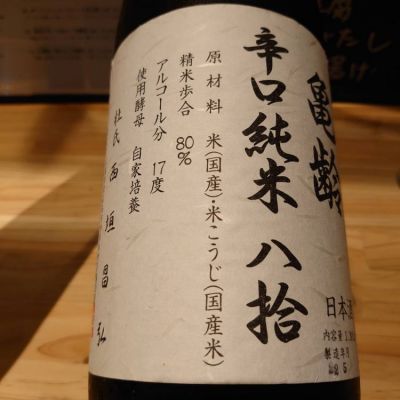 亀齢
辛口純米 八拾
原材料 米(国産)・米こうじ(国産米)
精米歩合 80%
アルコール分 17度
使用酵母 自家培養
杜氏 西垣昌弘
日本酒
内容量 1.
製造年月